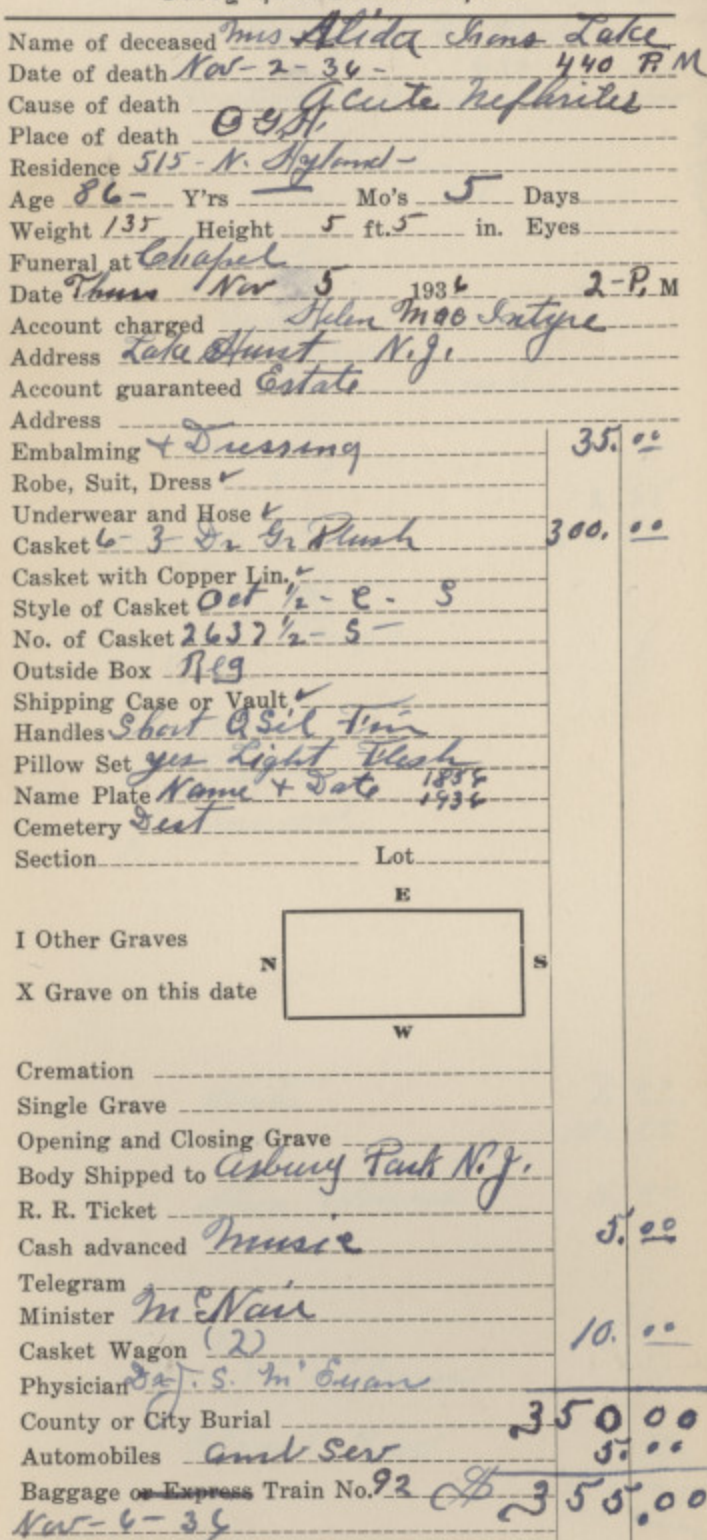 Name of deceased Mrs Alida Irons Lake
Date of death Nov-2-36- 440 P. M
Cause of death Acute Nefhrites
Place of death OGH.
Residence 515- N. Hyland-
Age 86- Y'rs — Mo's 5 Days
Weight 135 Height 5 ft. 5 in. Eyes
Funeral at Chapel
Date Thurs Nov 5 1936 2-P. M
Account charged Helen Mac Intyre
Address Lake Hurst N.J.
Account guaranteed Estate
Address
Embalming + Dressing 35. 00
Robe, Suit, Dress ✓
Underwear and Hose ✓
Casket 6-3 Dr Gr Plush 300. 00
Casket with Copper Lin. ✓
Style of Casket Oct 1/2 - C - S
No. of Casket 2637 1/2 - S -
Outside Box Reg
Shipping Case or Vault ✓
Handles Short Sil
Pillow Set yes Light Flesh
Name Plate Name + Date 1856
1936
Cemetery Dest
Section Lot
E
I Other Graves
N S
X Grave on this date
W
Cremation
Single Grave
Opening and Closing Grave
Body Shipped to Asbury Park N.J.
R. R. Ticket
Cash advanced Music 5. 00
Telegram
Minister McNair
Casket Wagon (2) 10. 00
Physician Dr J. S. McEuan
County or City Burial 350 00
Automobiles and Serv 5. 00
Baggage or Express Train No. 92 $ 355.00
Nov-6-36